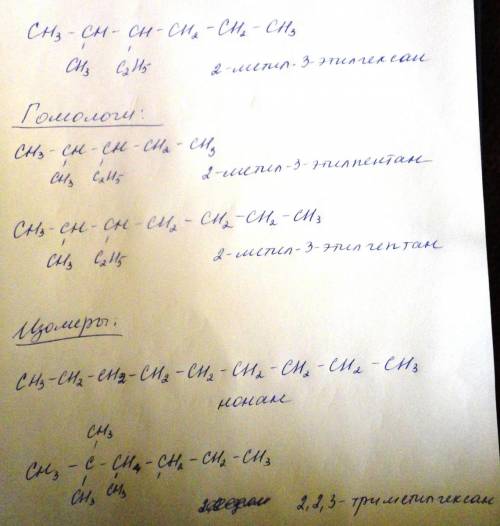 CH₃ - CH - CH - CH₂ - CH₂ - CH₃
CH₃ C₂H₅
2-метил-3-этилгексан
Гомологи:
CH₃ - CH - CH - CH₂ - CH₃
CH₃ C₂H₅
2-метил-3-этилпентан
CH₃ - CH - CH - CH₂ - CH₂ - CH₂ - CH₃
CH₃ C₂H₅
2-метил-3-этилгептан
Изомеры:
CH₃ - CH₂ - CH₂ - CH₂ - CH₂ - CH₂ - CH₂ - CH₂ - CH₃
нонан
CH₃
CH₃ - C - CH - CH₂ - CH₂ - CH₃
CH₃ CH₃
2,2,3-триметилгексан